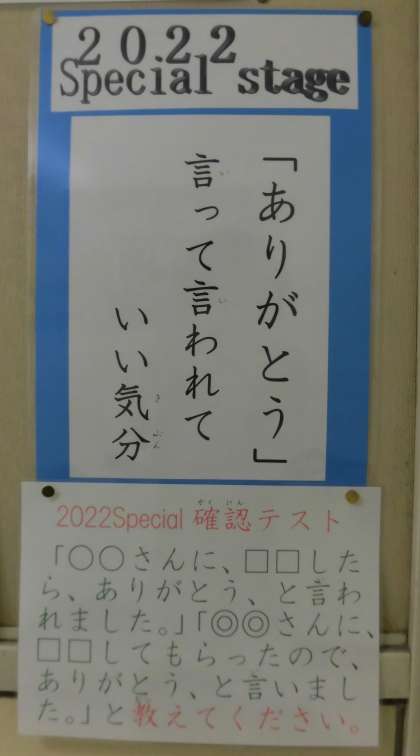 2022
Special stage
「ありがとう」
言って言われて
いい気分
2022Special 確認テスト
「○○さんに、□□した
ら、ありがとう、と言わ
れました。」「◎◎さんに、
□□してもらったので、
ありがとう、と言いまし
た。」と教えてください。